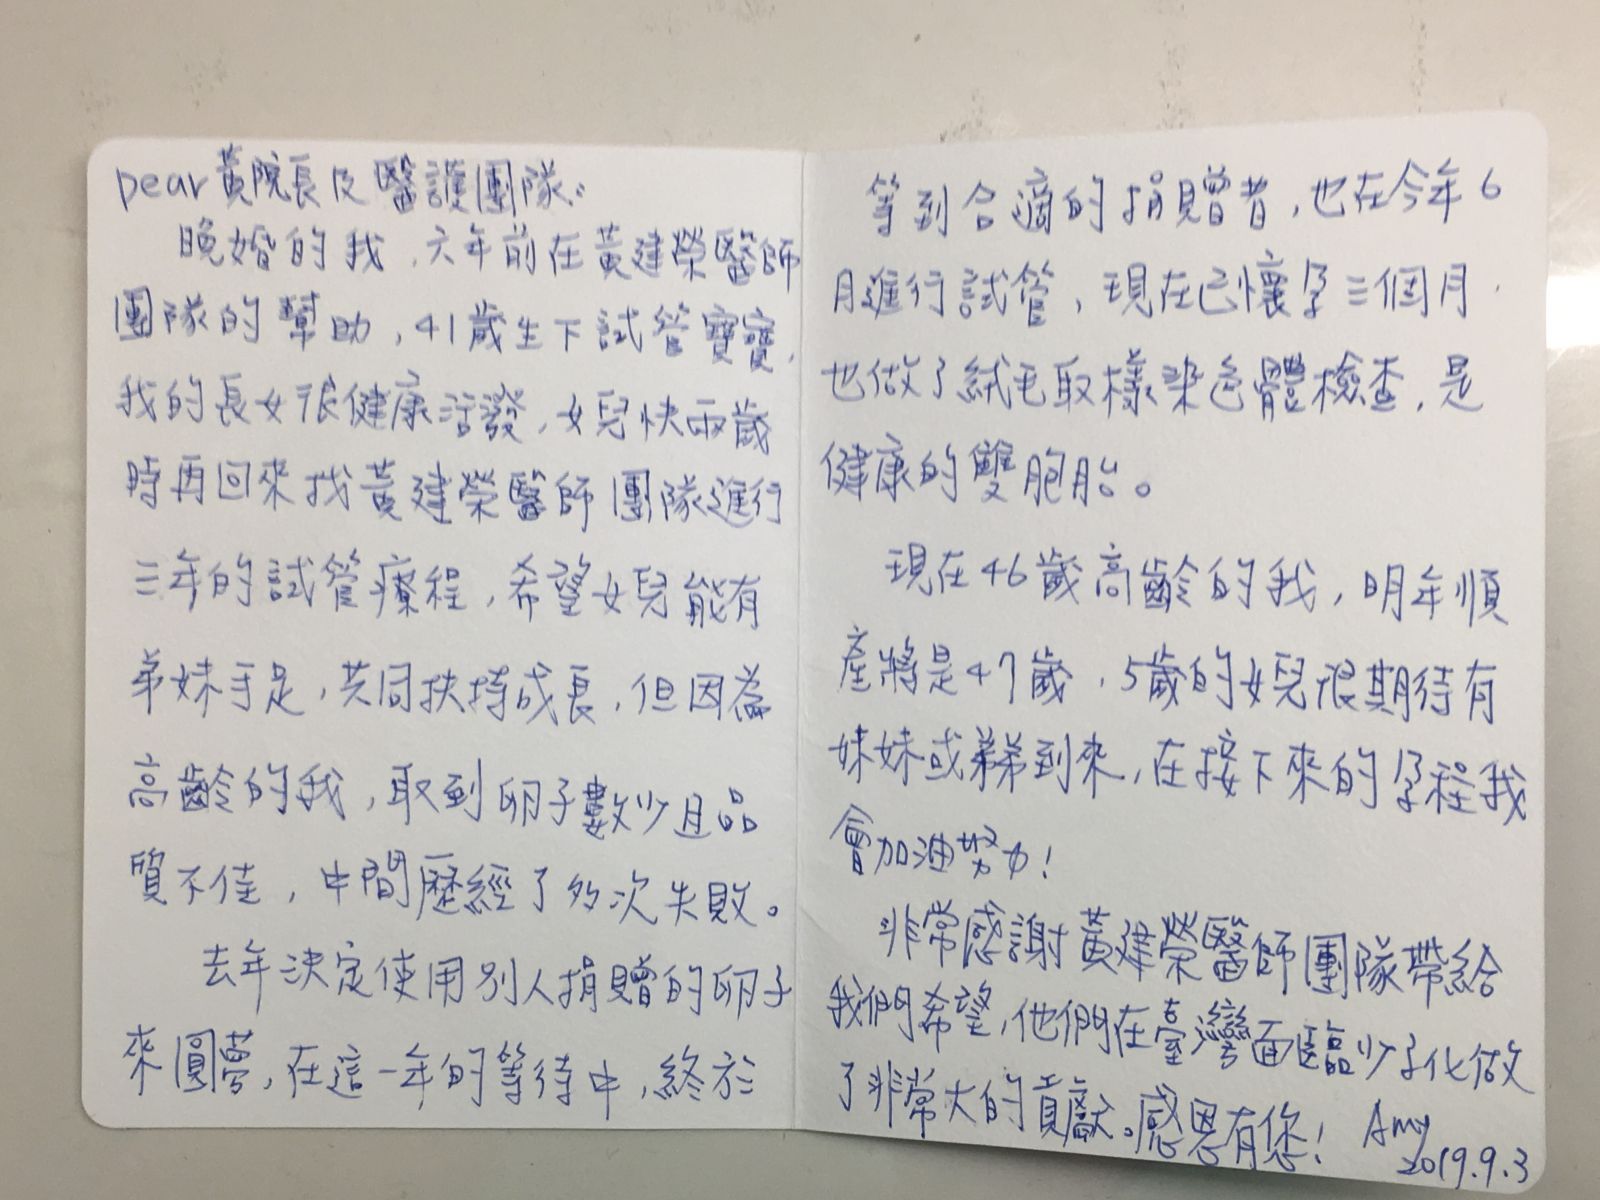 Dear 黃院長及醫護團隊:
晚婚的我,六年前在黃建榮醫師
團隊的幫助,41歲生下試管寶寶,
我的長女很健康活潑,女兒快兩歲
時再回來找黃建榮醫師團隊進行
三年的試管療程,希望女兒能有
弟妹手足,共同扶持成長,但因為
高齡的我,取到卵子數少且品
質不佳,中間歷經了多次失敗。
去年決定使用別人捐贈的卵子
來圓夢,在這一年的等待中,終於
等到合適的捐贈者,也在今年6
月進行試管,現在已懷孕三個月,
也做了絨毛取樣染色體檢查,是
健康的雙胞胎。
現在46歲高齡的我,明年順
產將是47歲,5歲的女兒很期待有
妹妹或弟弟到來,在接下來的孕程我
會加油努力!
非常感謝黃建榮醫師團隊帶給
我們希望,他們在臺灣面臨少子化做
了非常大的貢獻。感恩有您!
Amy
2019.9.3